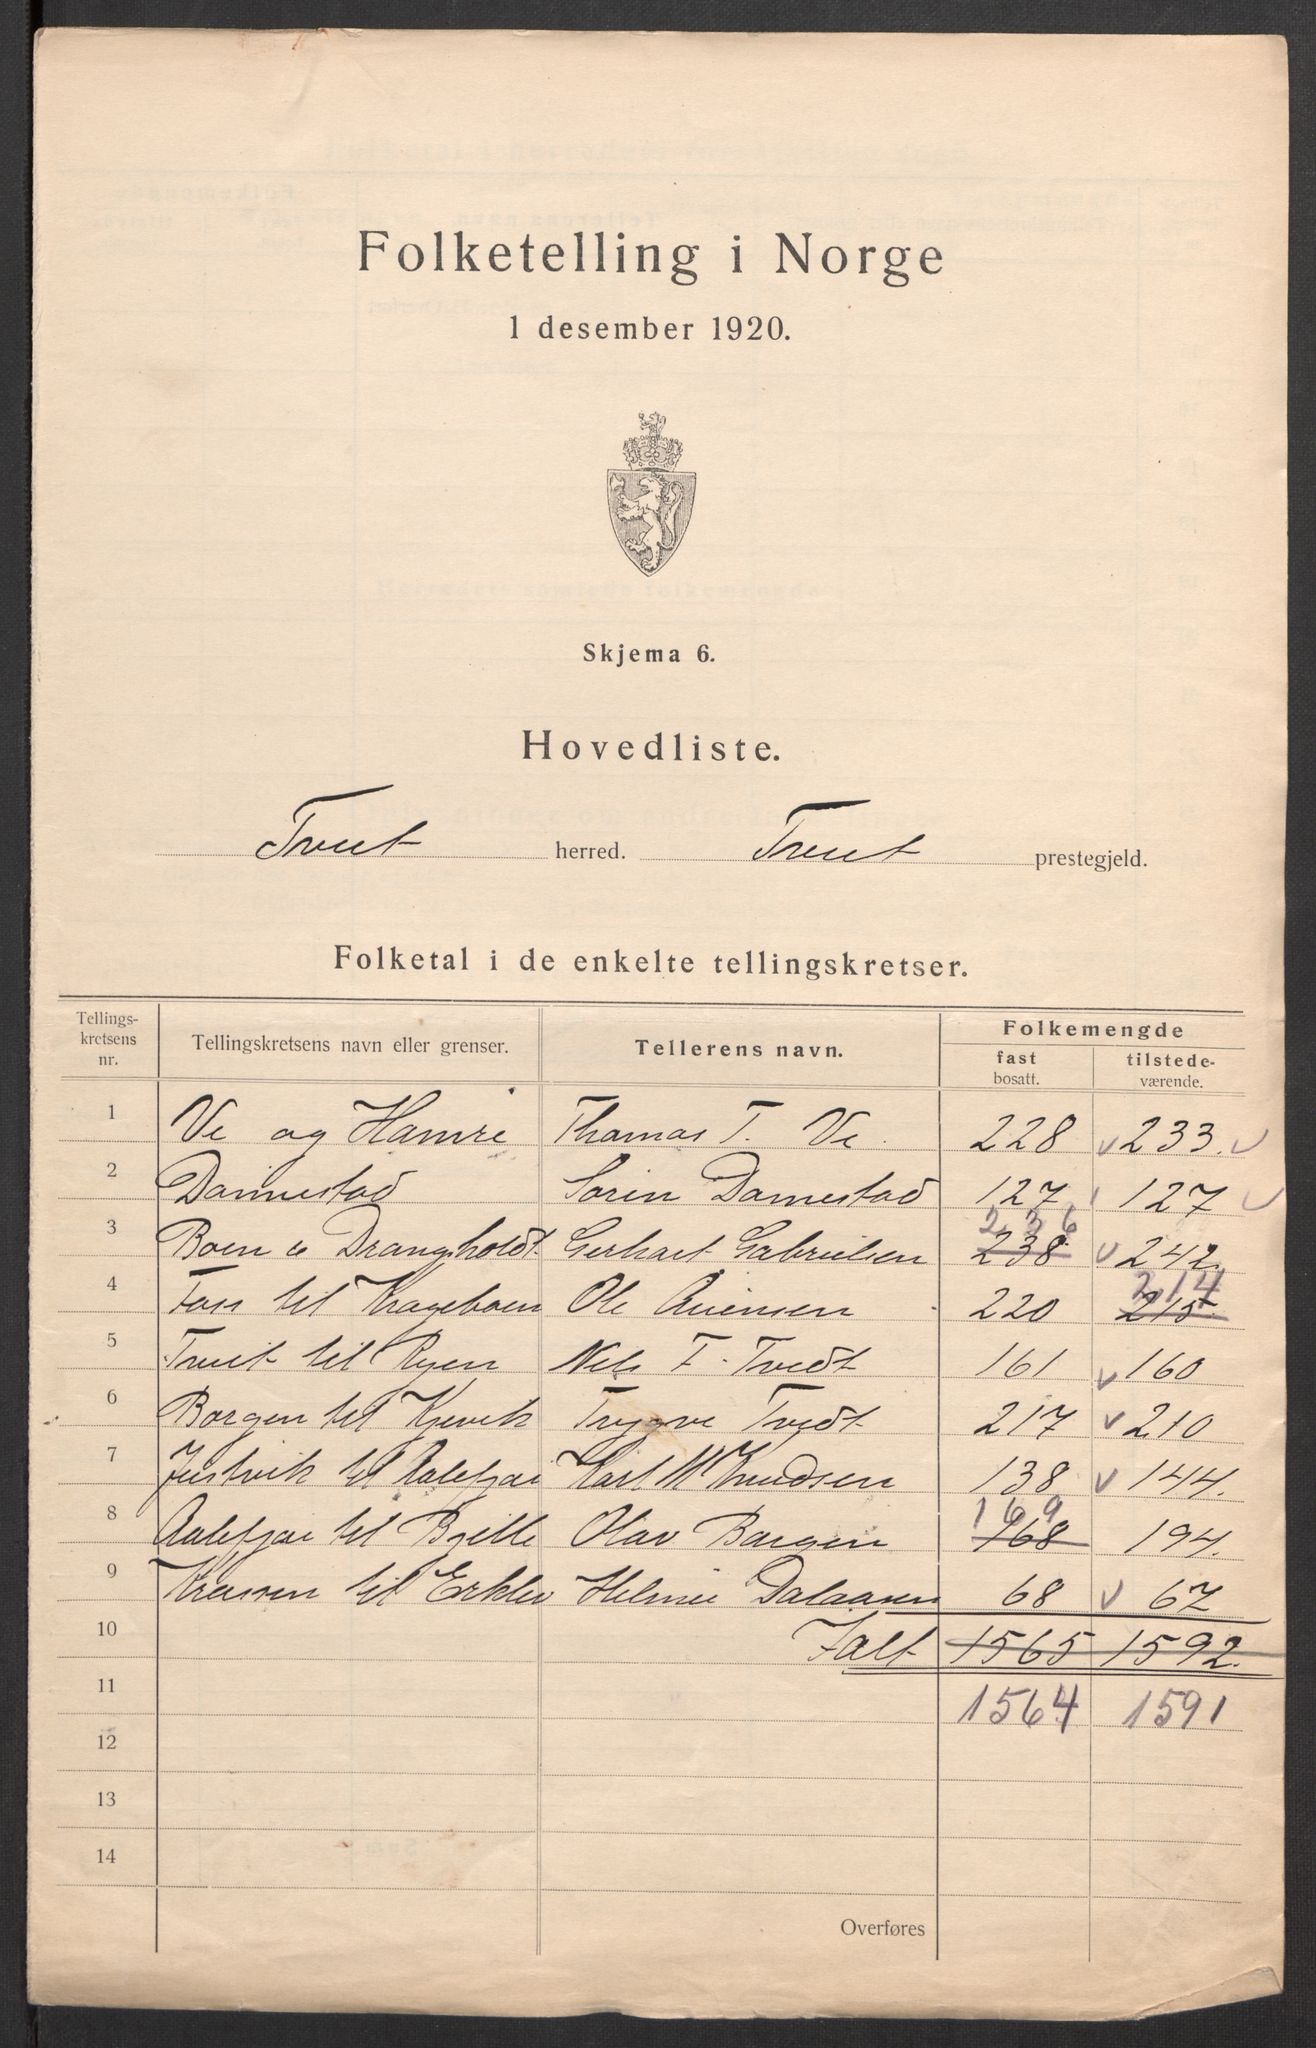 Folketelling i Norge
1 desember 1920.
Skjema 6.
Hovedliste.
Tveit herred. Tveit prestegjeld.
Folketal i de enkelte tellingskretser.
Tellings-
kretsens
nr.
Tellingskretsens navn eller grenser.
Tellerens navn.
Folkemengde
fast
bosatt.
tilstede-
værende.
1 Ve og Hamre Thomas T. Ve. 228 233.
2 Dønnestad Søren Dønnestad 127 127
236
3 Boen Drangsholdt Gerhart Gabrielsen 238 242
214
4 Foss til Krageboen Ole 220 215.
5 Tveit til Ryen Nils F. Tvedt 161 160
6 Borgen til Kjevik Trygve Tvedt 217 210
7 Justvik til Aalefjær Karl M Knudsen 138 144.
169
8 Aalefjær til Olav Borgen 168 194.
9 til Erklev Dalaanen 68 67
10 Ialt 1565 1592.
11 1564 1591
12
13
14
Overføres